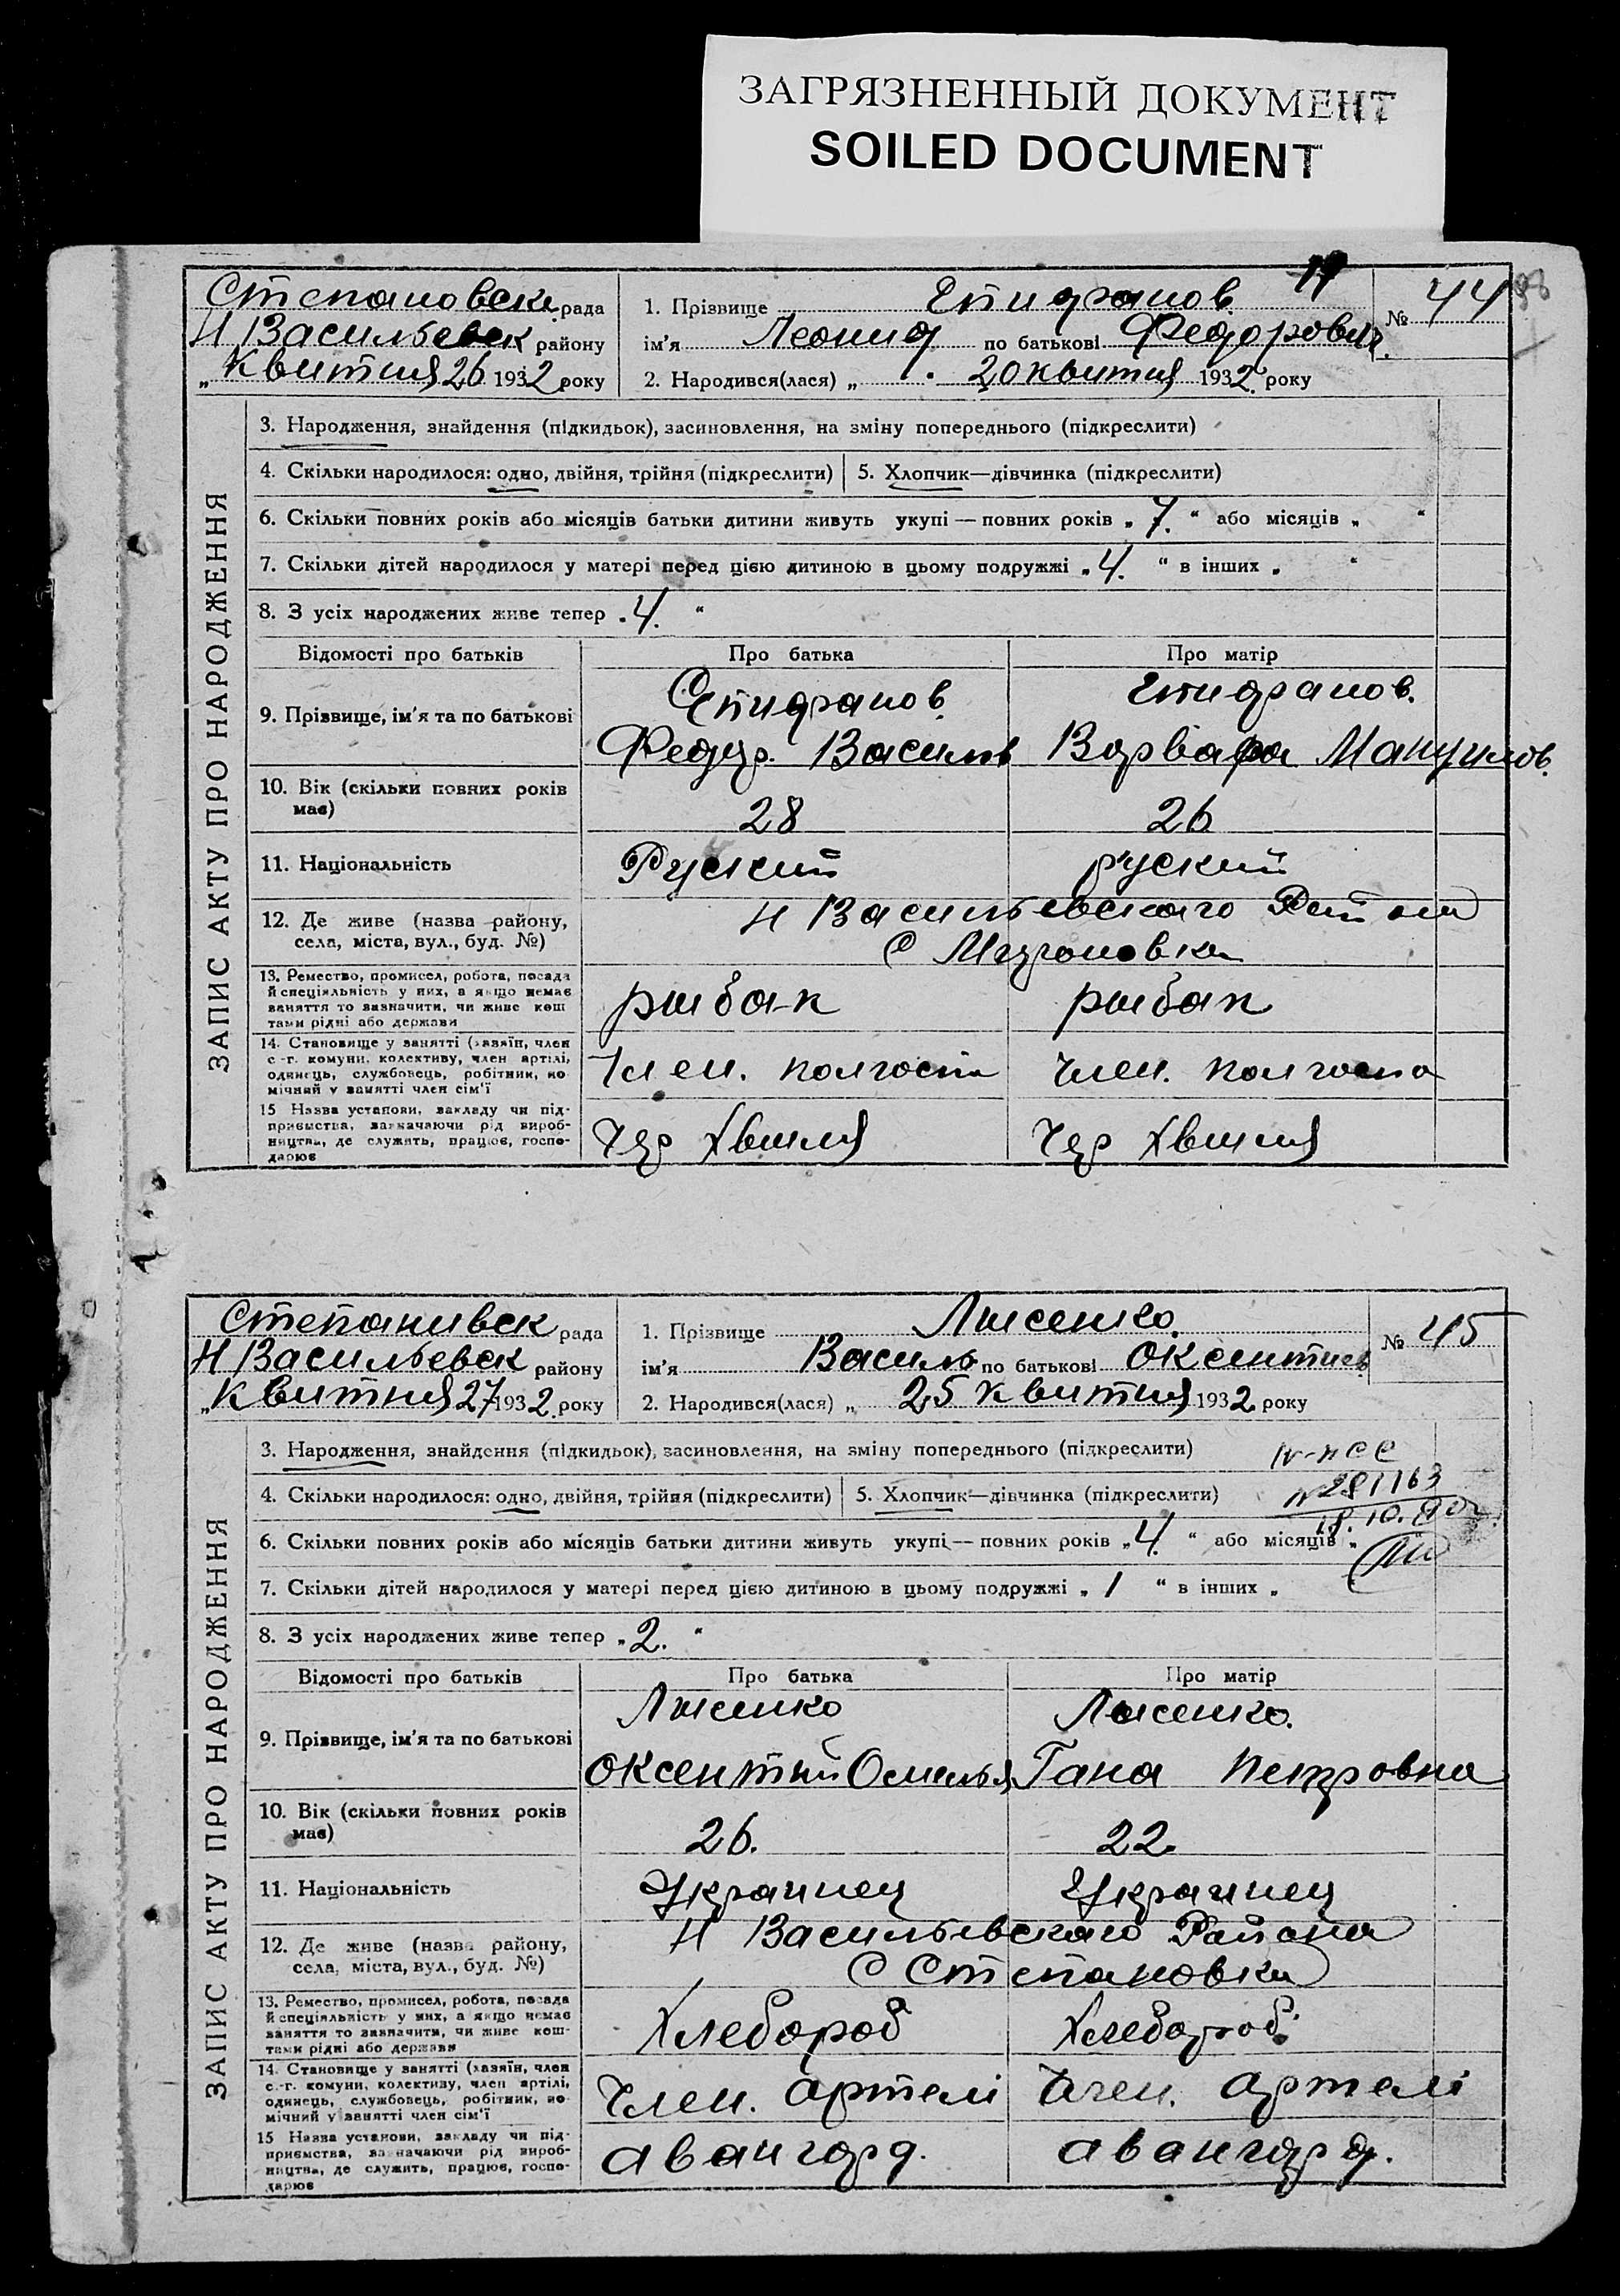 ЗАГРЯЗНЕННЫЙ ДОКУМЕНТ
SOILED DOCUMENT
Степановск рада
Н Васильевск району
„ Квитня 26 1932 року
1. Прізвище Епифанов
ім’я Леонид по батькові Федорович
2. Народився(лася) „ 20 квитня 1932 року
№ 44
ЗАПИС АКТУ ПРО НАРОДЖЕННЯ
3. Народження, знайдення (підкидьок), засиновлення, на зміну попереднього (підкреслити)
4. Скільки народилося: одно, двійня, трійня (підкреслити) 5. Хлопчик—дівчинка (підкреслити)
6. Скільки повних років або місяців батьки дитини живуть укупі — повних років „ 7. “ або місяців „ “
7. Скільки дітей народилося у матері перед цією дитиною в цьому подружжі „ 4. “ в інших „ “
8. З усіх народжених живе тепер „ 4. “
Відомості про батьків Про батька Про матір
9. Прізвище, ім’я та по батькові
Епифанов Епифанов.
Федор. Василь Варвара Мануилов.
10. Вік (скільки повних років
має)
28 26
11. Національність Руский руский
12. Де живе (назва району,
села, міста, вул., буд. №)
Н Васильевского Район
С
13. Ремество, промисел, робота, посада
й спеціяльність у них, а якщо немає
заняття то зазначити, чи живе кош
тами рідні або держави
рыбак рыбак
14. Становище у занятті (хазяїн, член
с-г. комуни, колективу, член артілі,
одинець, службовець, робітник, по
мічний у занятті член сім’ї
Член. колгоспа Член. колгоспа
15 Назва установи, закладу чи під-
приємства, зазначаючи рід вироб-
ництва, де служить, працює, госпо-
дарює
Чер Хвиля Чер Хвиля
Степанивск рада
Н Васильевск району
„ Квитня 27 1932 року
1. Прізвище Лисенко.
ім’я Василь по батькові Оксентиев
2. Народився(лася) „ 25 квитня 1932 року
№ 45
ЗАПИС АКТУ ПРО НАРОДЖЕННЯ
3. Народження, знайдення (підкидьок), засиновлення, на зміну попереднього (підкреслити)
№ 281163
18.10.90г.
4. Скільки народилося: одно, двійня, трійня (підкреслити) 5. Хлопчик—дівчинка (підкреслити)
6. Скільки повних років або місяців батьки дитини живуть укупі — повних років „ 4. “ або місяців „
7. Скільки дітей народилося у матері перед цією дитиною в цьому подружжі „ 1 “ в інших „
8. З усіх народжених живе тепер „ 2. “
Відомості про батьків Про батька Про матір
9. Прізвище, ім’я та по батькові
Лисенко Лисенко.
Оксентий Омелья Гана Петровна
10. Вік (скільки повних років
має)
26. 22.
11. Національність Украинец Украинец
12. Де живе (назва району,
села, міста, вул., буд. №)
Н Васильевского Района
С Степановка
13. Ремество, промисел, робота, посада
й спеціяльність у них, а якщо немає
заняття то зазначити, чи живе кош-
тами рідні або держави
Хлебороб Хлебороб.
14. Становище у занятті (хазяїн, член
с.-г. комуни, колективу, член артілі,
одинець, службовець, робітник, по
мічний у занятті член сім’ї
Член. артелі Член. артелі
15 Назва установи, закладу чи під-
приємства, зазначаючи рід вироб-
ництва, де служить, працює, госпо-
дарює
авангард. авангард.